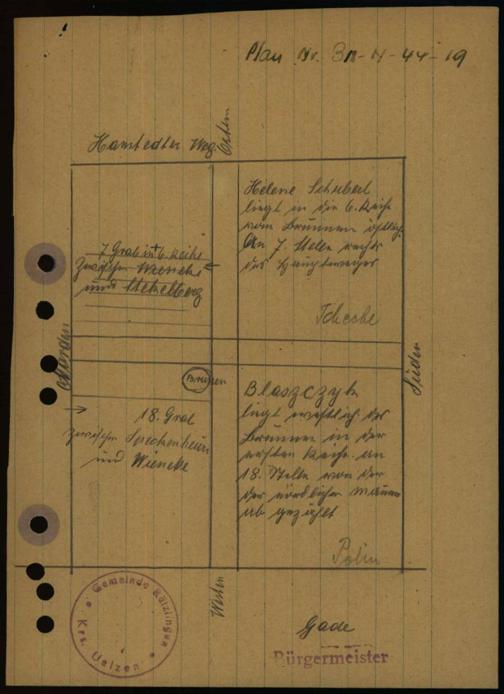 Plan Nr. 3N-N-44-19
Hanstedter Weg.
Osten
Helene Schubert
liegt in der 6. Reihe
vom Brunnen östlich.
An 7. Stelle rechts
des Hauptweges
Tscheche
7 Grab in 6. Reihe
zwischen Wieneke
und Stekelberg
Norden
Süden
Brunnen
18. Grab
zwischen Sprechenheim
und Wieneke
Blaszczyk
liegt westlich des
Brunnen in der
ersten Reihe. an
18. Stelle von der
der nördlicher Mauer
ab gezählt
Polin
Westen
Gemeinde Rätzlingen
Krs. Uelzen
Gade
Bürgermeister